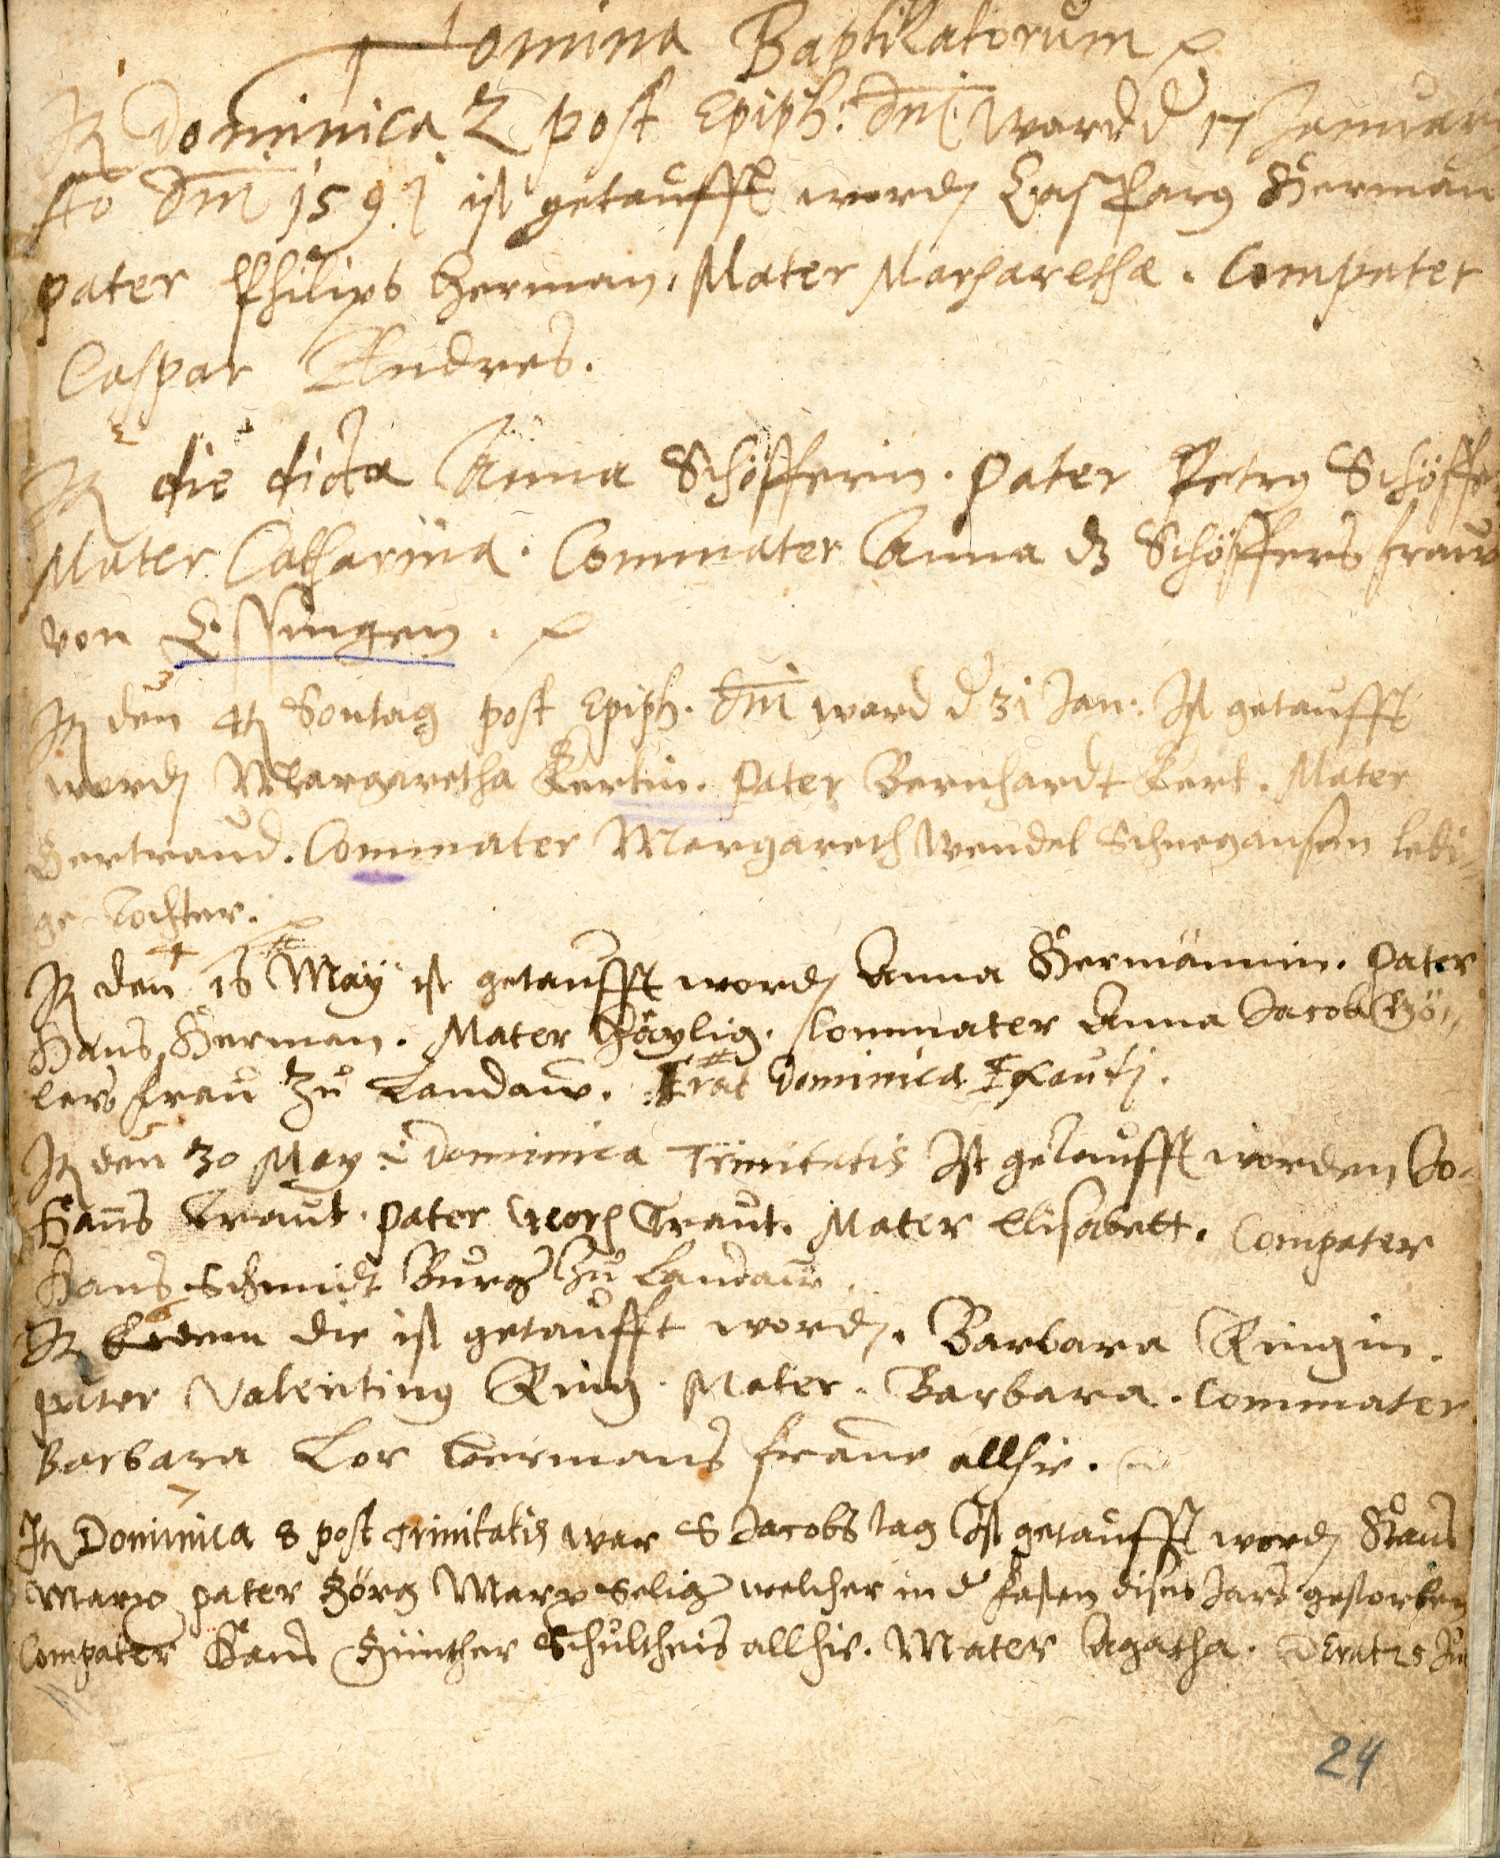 Nomina Baptizatorum
1
It Dominica 2 post Epiph: dni ward d 17 Januar
Ao dni 1591 ist getaufft word Casparg Herman
pater Philips Herman. Mater Margaretha. Compater
Caspar Andres.
2
It die dicta Anna Schöfferin. Pater Petrg Schöffer
Mater Catharina. Commater Anna dz Schöffers fraw
von Essingen.
3
It den 4t Sontag post Epiph. dni ward d 31 Jan: Ist getaufft
word Margaretha Kertin. Pater Bernhardt Kert. Mater
Gertraud. Commater Margareth Wendel Schnegansen ledi=
ge Tochter.
4
It den 16 May ist getaufft word Anna Hermännin. Pater
Hans Herman. Mater Commater Anna Jacob
lers frau zu Landaw. Erat Dominica Exaudi.
It den 30 May Dominica Trinitatis Ist getaufft worden Jo-
hans Traut. Pater Georg Traut. Mater Elisabett. Compater
Hans Schmidt Burg zu Landaw.
6
It Eodem die ist getaufft word. Barbara Ringin.
pater Valenting Ring. Mater. Barbara. Commater
Barbara Lor frauw allhie.
7
It Dominica 8 post Trinitatis war S Jacobs tag Ist getaufft word Hans
Marx pater Görg Marx Selig welcher in d fasten dises Jars gestorben
Compater Hans Günther Schultheis allhie. Mater Agatha. Erat 25 Jul
24